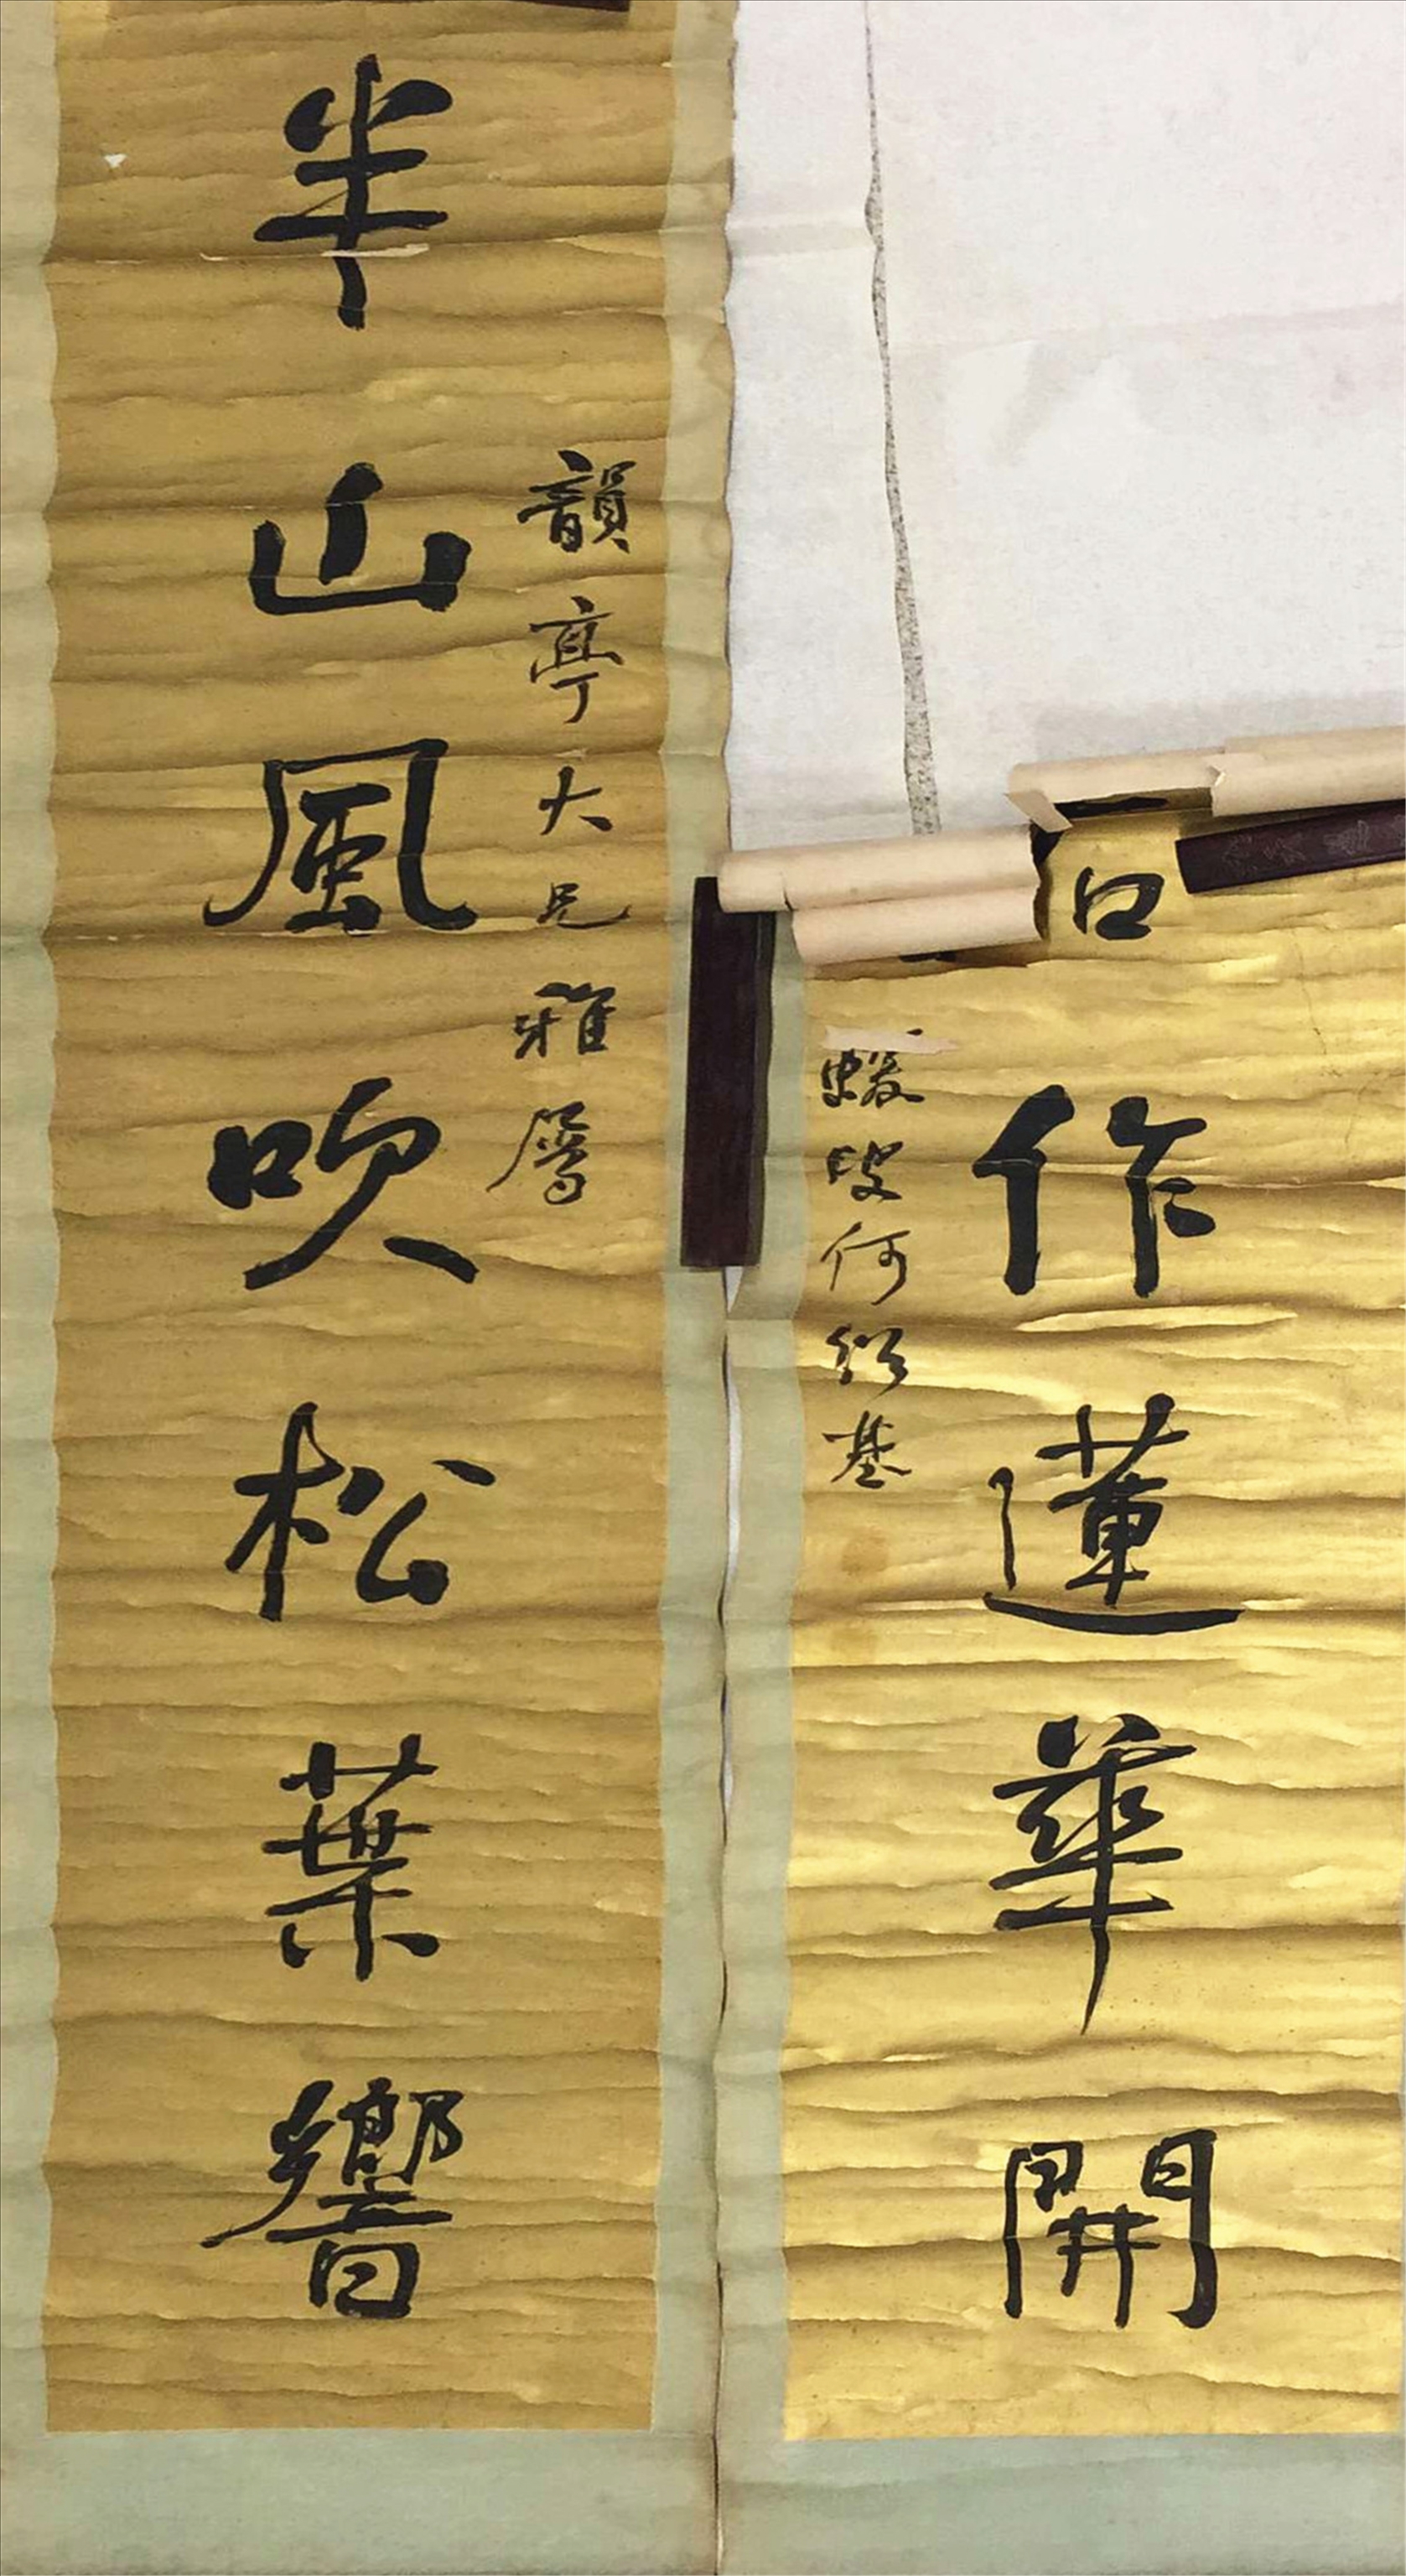 韻亭大兄雅屬
半山風吹松葉響
作蓮華開
蝯叟何紹基